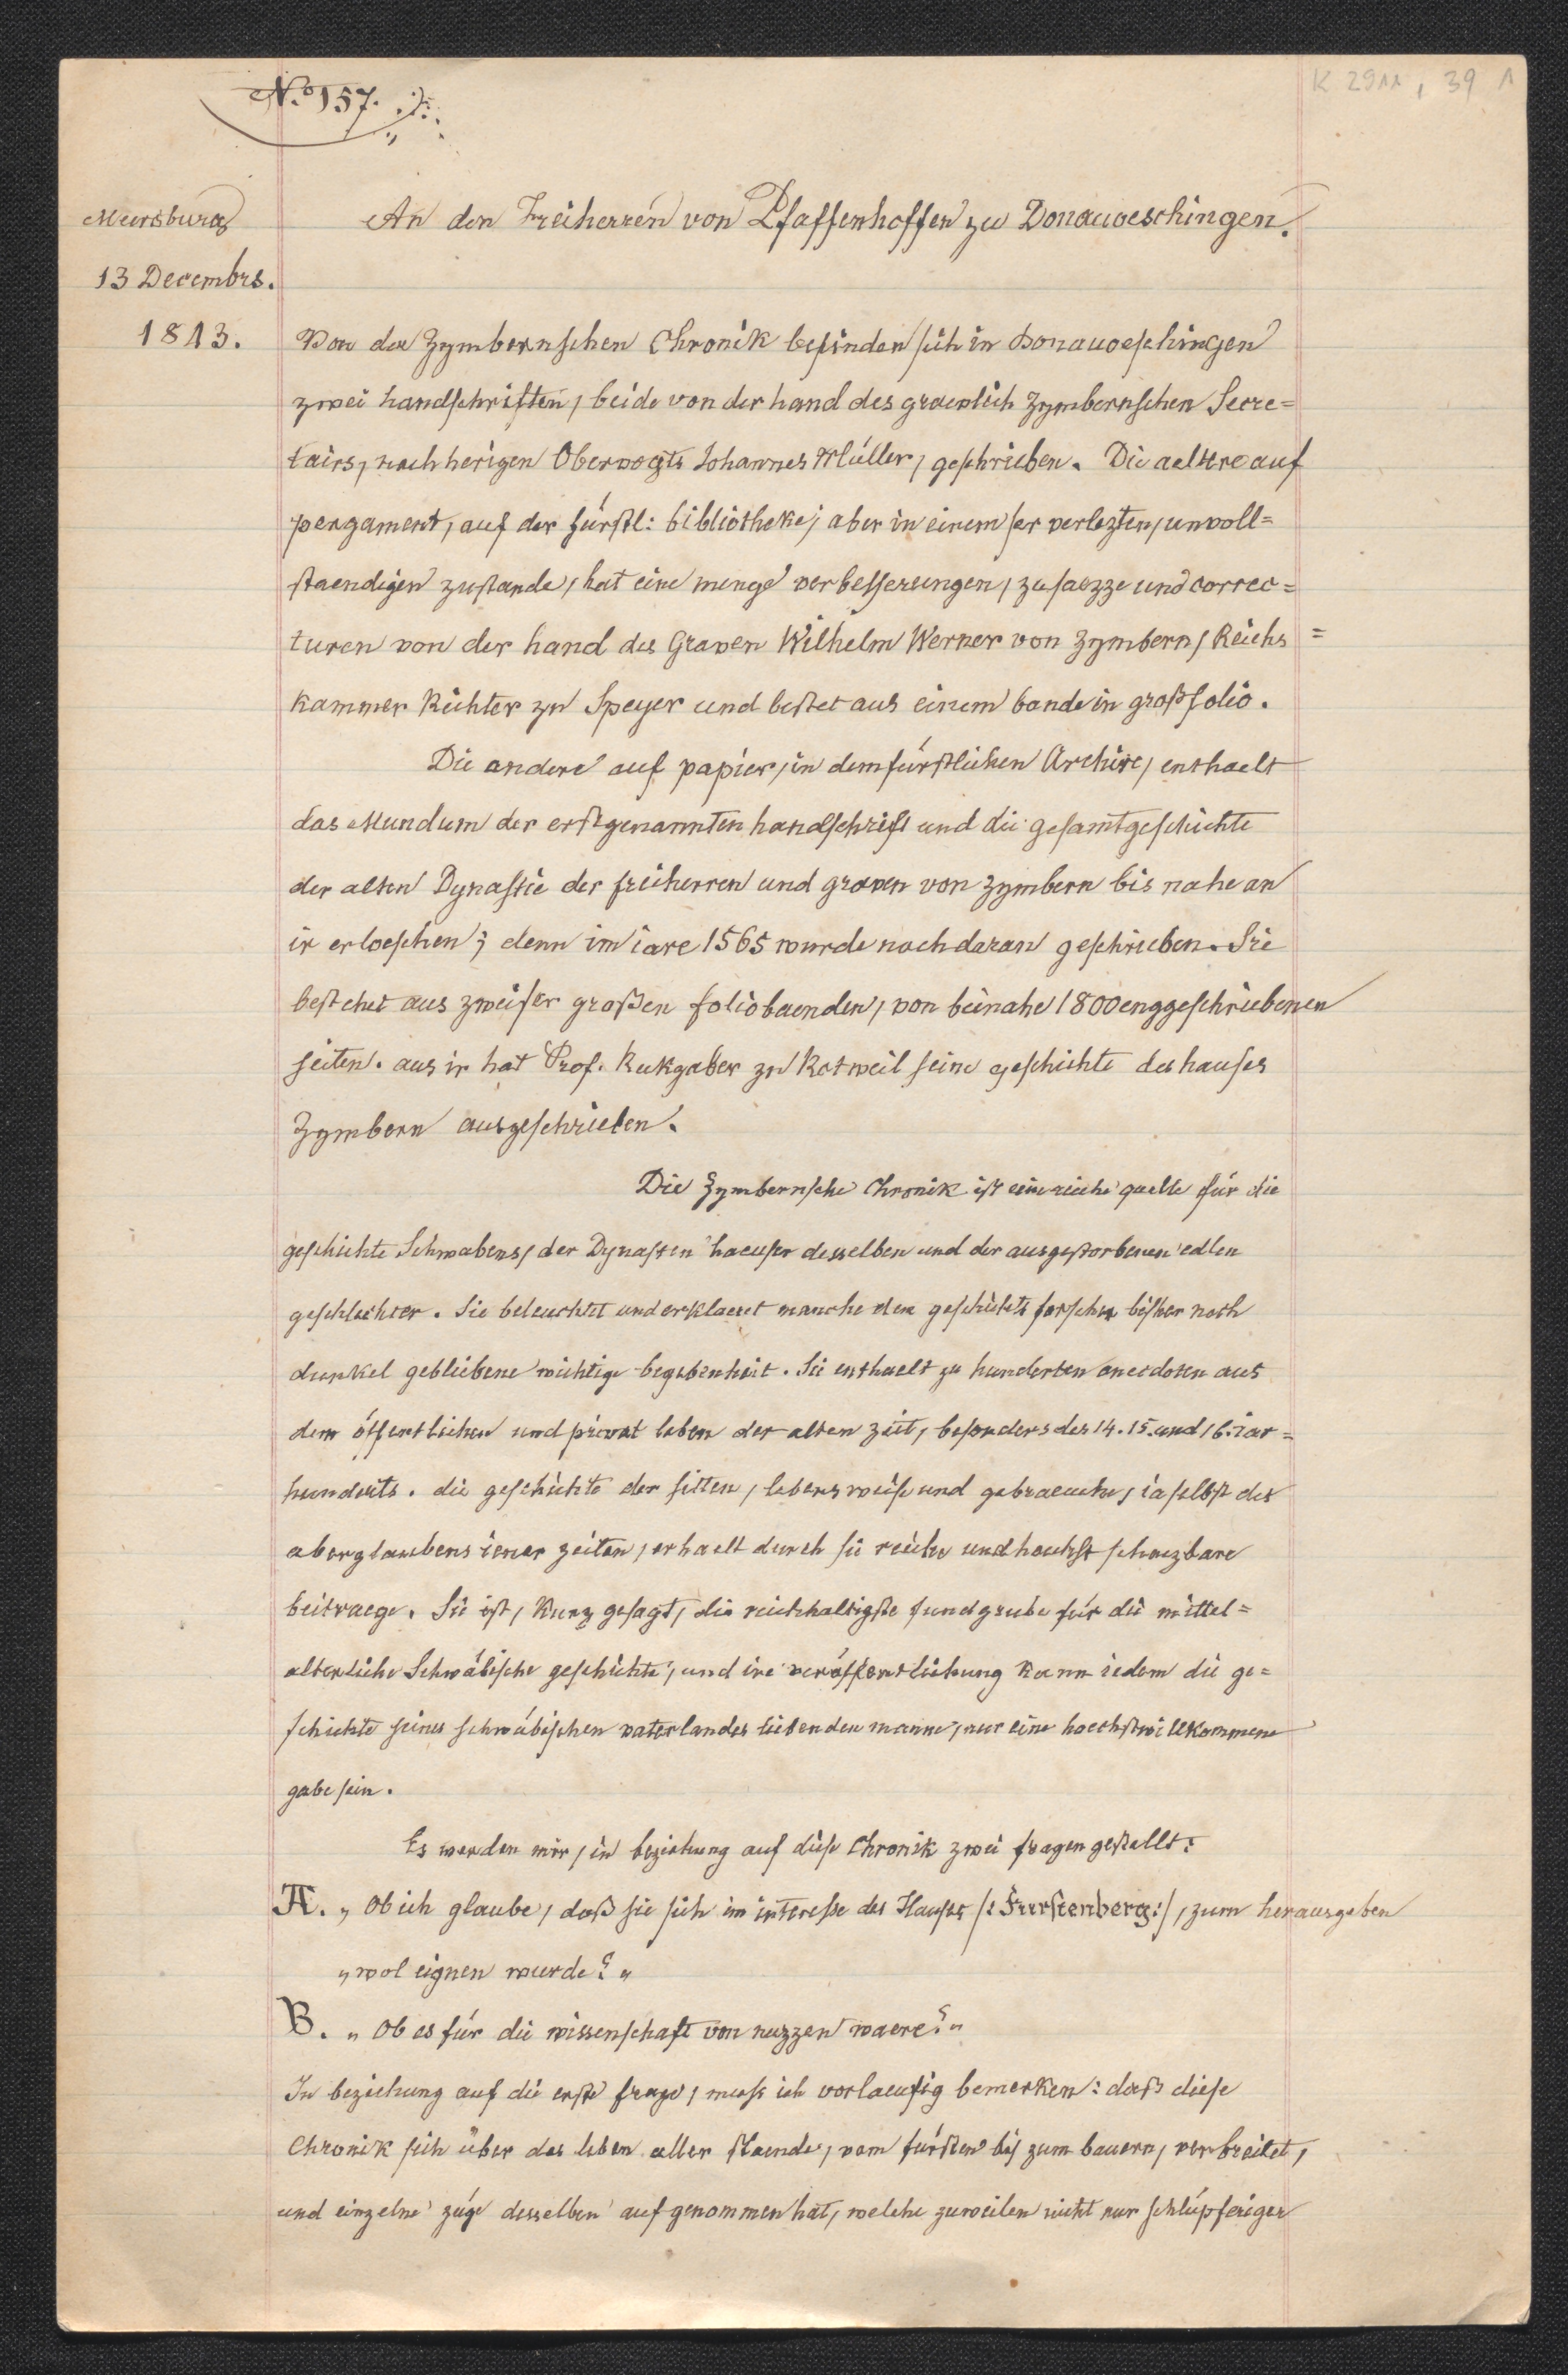 K 2911, 39 1
No. 157.
Meersburg
13 Decembrs.
1843.
An den Freiherren von Pfaffenhoffen zu Donauoeschingen.
Von der Zymbernſchen Chronik befinden ſich in Donauoeſchingen
zwei handſchriften, beide von der hand des graevlich Zymbernſchen Secre=
tairs, nachherigen Obervogts Johannes Müller, geſchrieben. Die aeltere auf
pergament, auf der fürſtl: bibliotheke; aber in einem ſer verlezten, unvoll=
ſtaendigen zuſtande, hat eine menge verbeſſerungen, zuſaezze und correc=
turen von der hand des Graven Wilhelm Werner von Zymbern, Reichs=
kammer Richter zu Speyer und beſtet aus einem bande in großfolio.
Die andere auf papier, in dem fürſtlichen Archive, enthaelt
das Mundum der erſtgenannten handſchrift und die geſamtgeſchichte
der alten Dynaſtie der freiherren und graven von Zymbern bis nahe an
ir erloeſchen; denn im iare 1565 wurde noch daran geſchrieben. Sie
beſtehet aus zwei ſer großen foliobaenden, von beinahe 1800 enggeſchriebenen
ſeiten. aus ir hat Prof. Rukgaber zu Rotweil ſeine geſchichte des hauſes
Zymbern ausgeſchrieben.
Die Zymbernſche Chronik iſt eine reiche quelle für die
geſchichte Schwabens, der Dynaſten haeuſer desselben und der ausgeſtorbenen edlen
geſchlechter. Sie beleuchtet und erklaeret manche dem geſchichts forſcher bisher noch
dunkel gebliebene wichtige begebenheit. Sie enthaelt zu hunderten anecdoten aus
dem öffentlichen und privat leben der alten zeit, beſonders des 14. 15. und 16. iar=
hunderts. die geſchichte der ſitten, lebensweiſe und gebraeuche, ia ſelbſt des
aberglaubens iener zeiten, erhaelt durch ſie reiche und hoechſt ſchaezbare
beitraege. Sie iſt, kurz geſagt, die reichhaltigſte fundgrube für die mittel=
alterliche Schwäbiſche geſchichte, und ire veröffentlichung kann iedem die ge=
ſchichte ſeines ſchwäbiſchen vaterlandes liebenden manne, nur eine hoechſtwillkommene
gabe ſein.
Es werden mir, in beziehung auf dieſe Chronik zwei fragen geſtellt:
A. „ Ob ich glaube, daß ſie ſich im intereſſe des Hauſes /: Fürſtenberg :/, zum herausgeben
„ wol eignen wurde? „
B. „ Ob es für die wissenſchaft von nuzzen waere? „
In beziehung auf die erſte frage, muſs ich vorlaeufig bemerken: daſs dieſe
Chronik ſich über das leben aller ſtaende, vom fürſten bis zum bauern, verbreitet,
und einzelne züge desselben aufgenommen hat, welche zuweilen nicht nur ſchlüpferiger